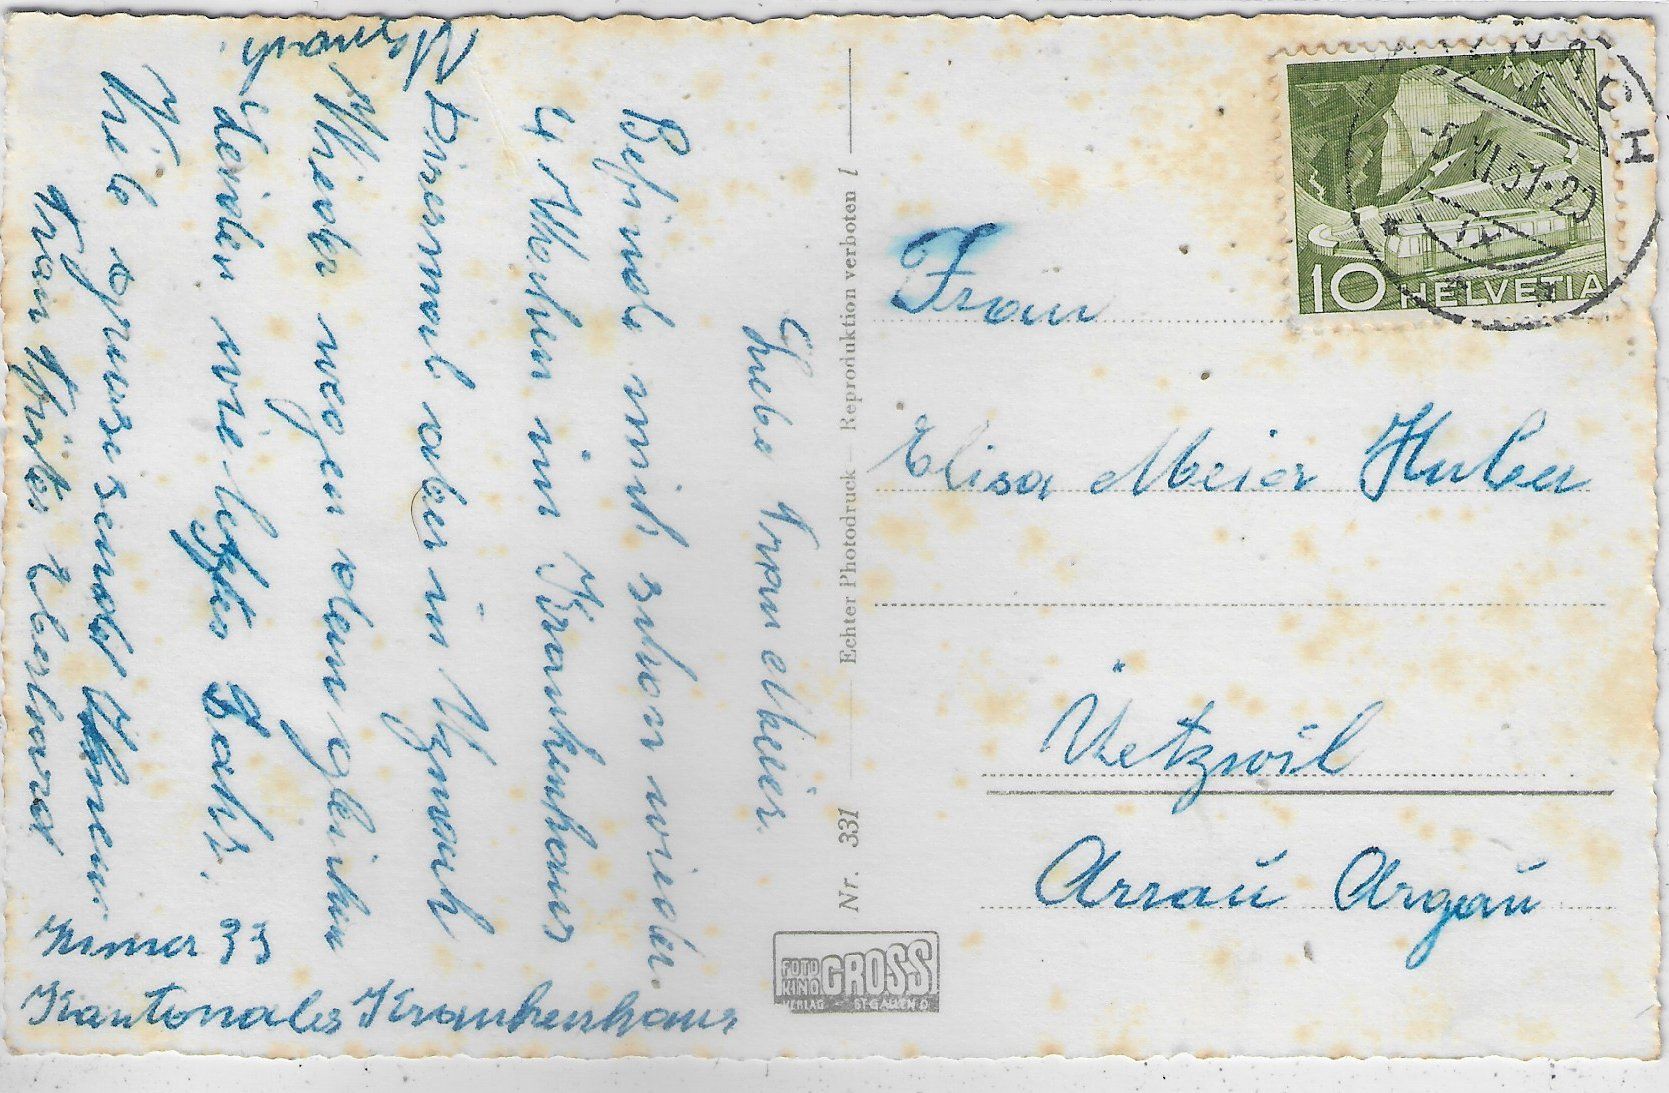 Liebe Frau Meier.
Befinde mich schon wieder
4 Wochen im Krankenhaus
Diesmal aber in Uznach
Wieder wegen dem gleichen
Leiden wie letztes Jahr.
Viele Grüsse sendet Ihnen
Frau Eberhard
Zimmer 33
Kantonales Krankenhaus
Uznach.
Nr. 331
Echter Photodruck — Reproduktion verboten
FOTO KINO GROSS
VERLAG - ST. GALLEN
10 HELVETIA
-5.XI.51
Frau
Elisa Meier Huber
Üetzwil
Arrau Argau